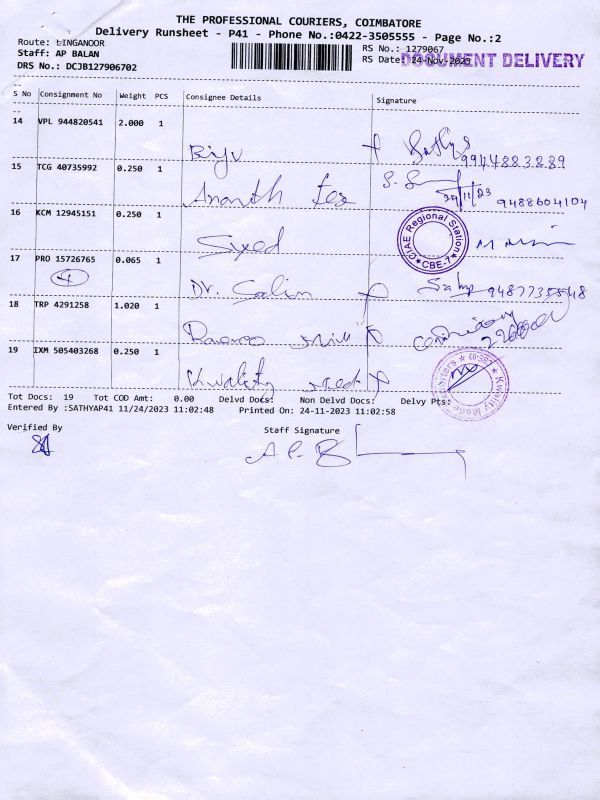 THE PROFESSIONAL COURIERS, COIMBATORE
Delivery Runsheet - P41 - Phone No.:0422-3505555 - Page No.:2
Route: LINGANOOR
Staff: AP BALAN
DRS No.: DCJB127906702
RS No.: 1279067
RS Date: 24-Nov-2023
DOCUMENT DELIVERY
S No Consignment No Weight PCS Consignee Details Signature
14 VPL 944820541 2.000 1
Biju 9944883289
15 TCG 40735992 0.250 1
Ananth Tex 24/11/23 9488604104
16 KCM 12945151 0.250 1
Syed
CIAE Regional Station
★ CBE-7 ★
17 PRO 15726765 0.065 1
4
Dr. Salin 9487735548
18 TRP 4291258 1.020 1
19 IXM 505403268 0.250 1
Kwality Medi
Tot Docs: 19 Tot COD Amt: 0.00 Delvd Docs: Non Delvd Docs: Delvy Pts:
Entered By :SATHYAP41 11/24/2023 11:02:48 Printed On: 24-11-2023 11:02:58
Verified By
Staff Signature